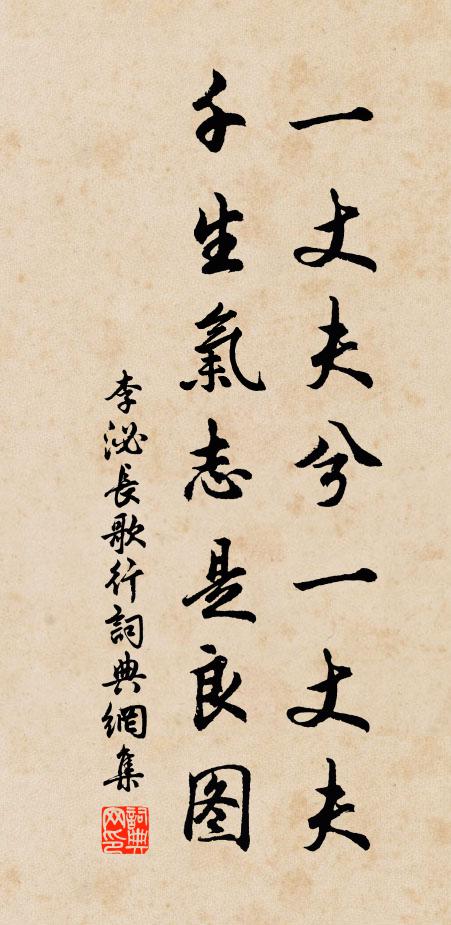 一丈夫兮一丈夫
千生氣志是良图
李泌長歌行詞典網集
詞典
网印